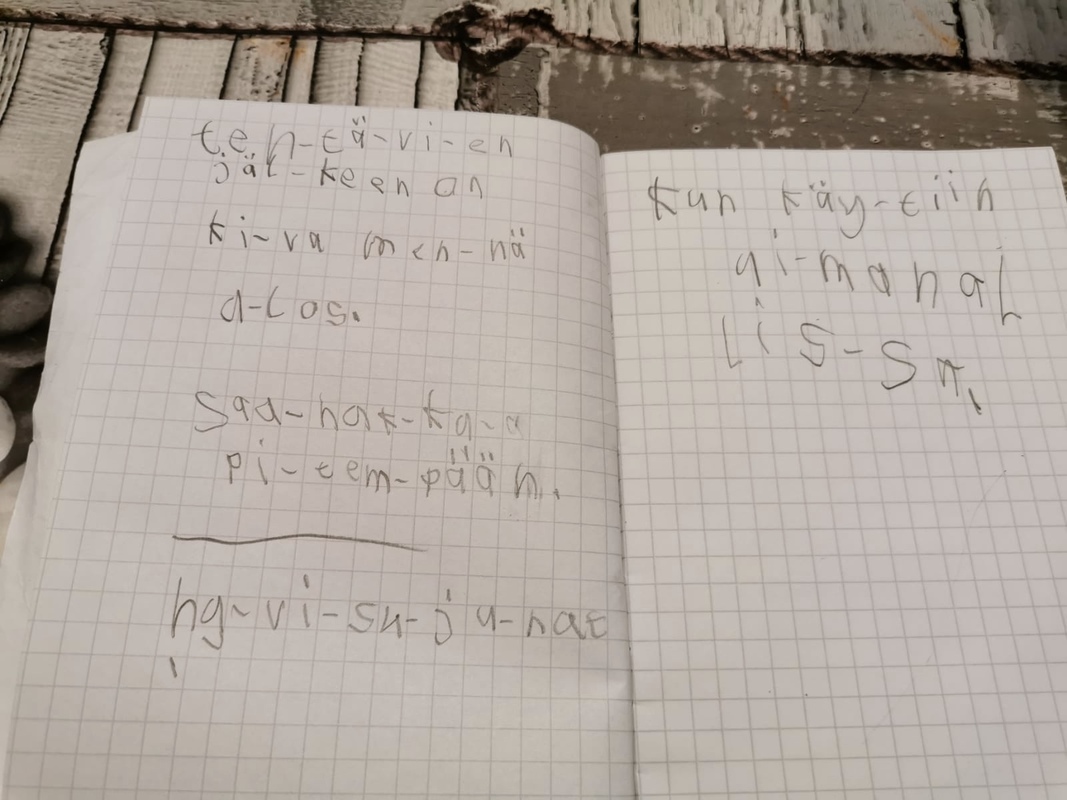 teh-tä-vi-en
jäl-keen on
ki-va men-nä
u-los.
Saa-nuk-ku-a
pi-tem-pään.
hy-vi-su-ju-nat
Kun käy-tiin
ui-mahal
lis-sa.